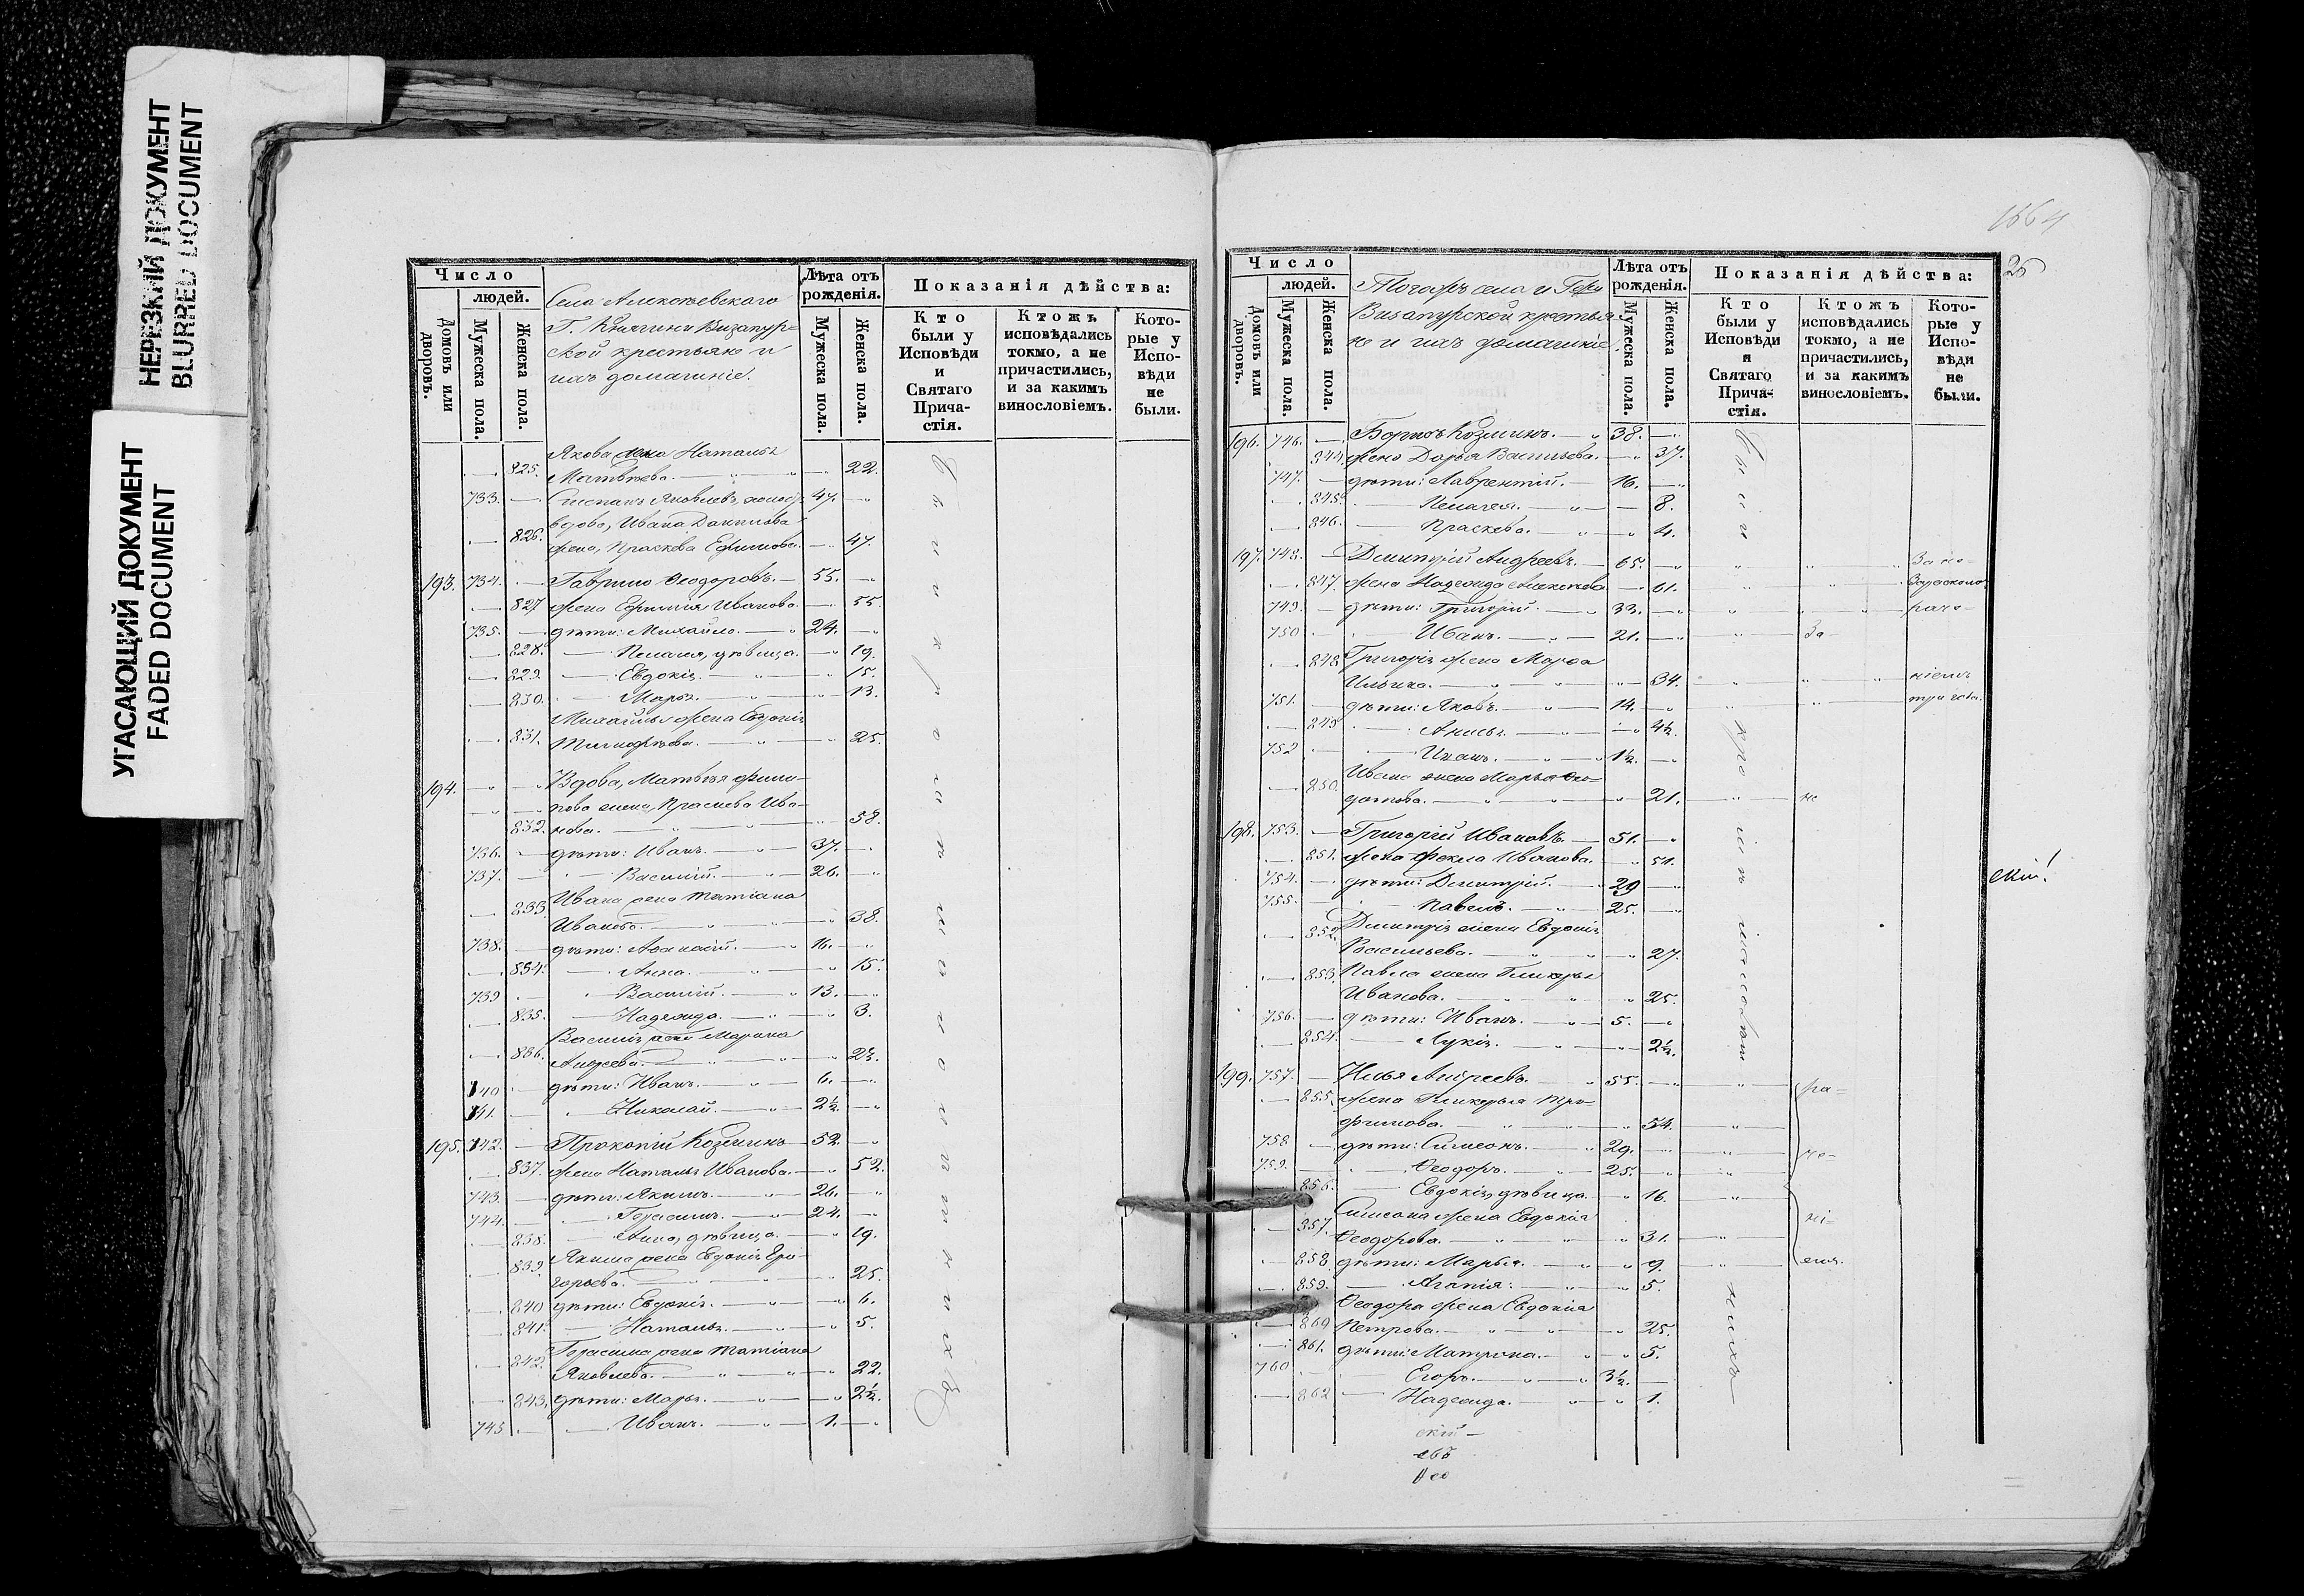 НЕРЕЗКИЙ ДОКУМЕНТ
BLURRED DOCUMENT
УГАСАЮЩИЙ ДОКУМЕНТ
FADED DOCUMENT
Число
людей.
Домовъ или дворовъ.
Мужеска пола.
Женска пола.
Села
Г. Княгини Визапур-
ской крестьяне и
ихъ домашніе.
Лѣта отъ рожденія.
Мужеска пола.
Женска пола.
Показанія дѣйства:
Кто были у Исповѣди и Святаго Прича-стія.
Ктожъ исповѣдались токмо, а не причастились, и за какимъ винословіемъ.
Кото-рые у Испо-вѣди не были.
Якова жена Наталья
825. Матвѣева. 22.
733. Яковлевъ, 47.
вдова, Ивана
826. жена, Праскева Ефимова. 47.
193. 734. Гаврило Ѳеодоровъ. 55.
827 жена Ефимія Иванова. 55.
735. дѣти: Михайло. 24.
828. Пелагея, дѣвица. 19.
829. Евдокія. 15.
830. Марья. 13.
Михайлы жена Евдокія
831. Тимоѳеева. 25.
194. Вдова, Матвѣя Фили-
пова жена, Праскева Ива-
832. нова. 58.
736. дѣти: Иванъ. 37.
737. Василій. 26.
Ивана жена Татіана
833. Иванова. 38.
738. дѣти: Аѳанасій. 16.
834. Анна. 15.
739 Василій. 13.
835. Надежда. 3.
Василія жена Марина
836. Андреева.
740 дѣти: Иванъ. 6.
741. Николай. 2½.
195. 742. Прокопій Козминъ 52.
837. жена Наталья Иванова. 52.
743. дѣти: Якимъ. 26.
744. Герасимъ. 24.
838. Анна, дѣвица. 19.
Якима жена Евдокія Гри-
839. горьева. 25.
840 дѣти: Евдокія. 6.
841. Наталья. 5.
Герасима жена Татіана
842. Яковлева. 22.
843. дѣти: Марья. 2½.
745 Иванъ. 1.
1664
25
Число
людей.
Домовъ или дворовъ.
Мужеска пола.
Женска пола.
Тогожъ села и Г-жи
Визапурской крестья-
не и ихъ домашніе.
Лѣта отъ рожденія.
Мужеска пола.
Женска пола.
Показанія дѣйства:
Кто были у Исповѣди и Святаго Прича-стія.
Ктожъ исповѣдались токмо, а не причастились, и за какимъ винословіемъ.
Кото-рые у Испо-вѣди не были.
196. 746. Борисъ Козминъ. 38.
844. жена Дарья Васильева. 37.
747. дѣти: Лаврентій. 16.
845. Пелагея. 8.
846. Праскева. 4.
197. 748. Димитрій Андреевъ. 65.
847. жена Надежда Алексѣева 61.
749. дѣти: Григорій. 33.
750 Иванъ. 21. За-
848 Григорія жена Марѳа
Ильина. 34. ніемъ
751. дѣти: Яковъ. 14.
849 Анисья. 4½.
752 Иванъ. 1½.
Ивана жена Марья Ѳео-
850. дотова. 21. не
198. 753. Григорій Ивановъ. 51.
851. жена Ѳекла Иванова. 51.
754. дѣти: Димитрій. 29
755. Павелъ. 25.
852. Димитрія жена Евдокія
Васильева. 27.
853. Павла жена Гликерья
Иванова. 25.
756. дѣти: Иванъ. 5.
854. Лукія. 2½.
199. 757. Илья Андреевъ. 55. ра-
855. жена Гликерья Тро-
фимова. 54.
758 дѣти: Симеонъ. 29.
759. Ѳеодоръ. 25.
856. Евдокія, дѣвица. 16.
Симеона жена Евдокія
857. Ѳеодорова. 31. ні-
858. дѣти: Марья. 9. емъ.
859. Агапія. 5.
Ѳеодора жена Евдокія
860 Петрова. 25.
861. дѣти: Матрона. 5.
760 Егоръ. 3½.
862 Надежда. 1.